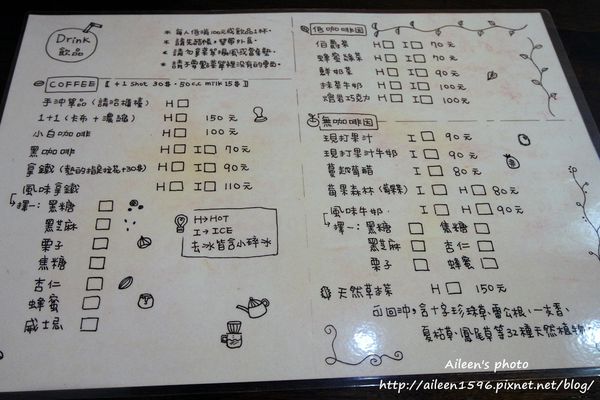 Drink
飲品
* 每人低消100元或飲品1杯.
* 請先結帳,
COFFEE 【 +1 shot 30$ · 50cc milk 15$ 】
手沖單品(請洽櫃檯) H□
1+1 (卡布 + 濃縮) H□ 150元
小白咖啡 H□ 100元
黑咖啡 H□ I□ 70元
拿鐵 (熱的指定拉花+30$) H□ I□ 90元
風味拿鐵 H□ I□ 110元
擇一: 黑糖 □
黑芝麻 □
栗子 □
焦糖 □
杏仁 □
蜂蜜 □
威士忌 □
H→HOT
I→ICE
去冰皆含小碎冰
低咖啡因
伯爵茶 H□ I□ 70元
蜂蜜綠茶 H□ I□ 90元
鮮奶茶 H□ I□ 90元
抹茶牛奶 H□ I□ 100元
巧克力 H□ I□ 100元
無咖啡因
現打果汁 I□ 90元
現打果汁牛奶 I□ 90元
蔓越莓醋 I□ 80元
莓果森林 I□ H□ 80元
風味牛奶. I□ H□ 90元
擇一: 黑糖 □ 焦糖 □
黑芝麻 □ 杏仁 □
栗子 □ 蜂蜜 □
天然草本茶 H□ 150元
可回沖,含十字珍珠草、雷公根、一支香、
夏枯草、鳳尾草等32種天然植物
Aileen's photo
http://aileen1596.pixnet.net/blog/